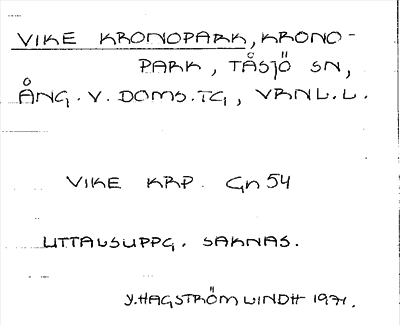 VIKE KRONOPARK, KRONO-
PARK, TÅSJÖ SN,
ÅNG. V. DOMS. TG, VRNL.L.
VIKE KRP. Gn 54
UTTALSUPPG. SAKNAS.
Y. HAGSTRÖM LINDH 1971.